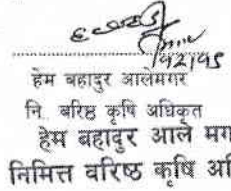 हेम बहादुर आलेमगर
नि. बरिष्ठ कृषि अधिकृत
हेम बहादुर आले मग
निमित्त वरिष्ठ कृषि अधि